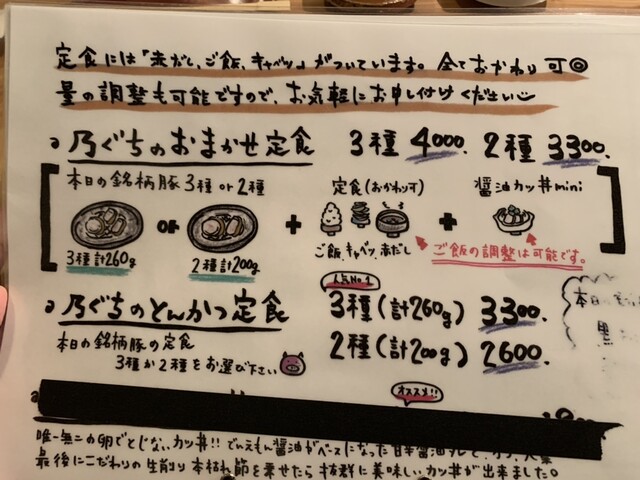 定食には「赤だし、ご飯、キャベツ」がついています。全ておかわり可◎
量の調整も可能ですので、お気軽にお申し付けください
乃ぐちのおまかせ定食 3種 4000. 2種 3300.
本日の銘柄豚3種or2種 定食(おかわり可) 醤油カツ丼mini
or + +
3種計260g 2種計200g ご飯、キャベツ、赤だし ご飯の調整は可能です。
人気No1
乃ぐちのとんかつ定食 3種(計260g) 3300.
本日の銘柄豚の定食 2種(計200g) 2600.
3種か2種をお選び下さい
本日の
オススメ!!
唯一無二の卵でとじないカツ丼!!でんえもん醤油がベースになった甘辛醤油タレで、
最後にこだわりの生削り本枯れ節を乗せたら抜群に美味しいカツ丼が出来ました。